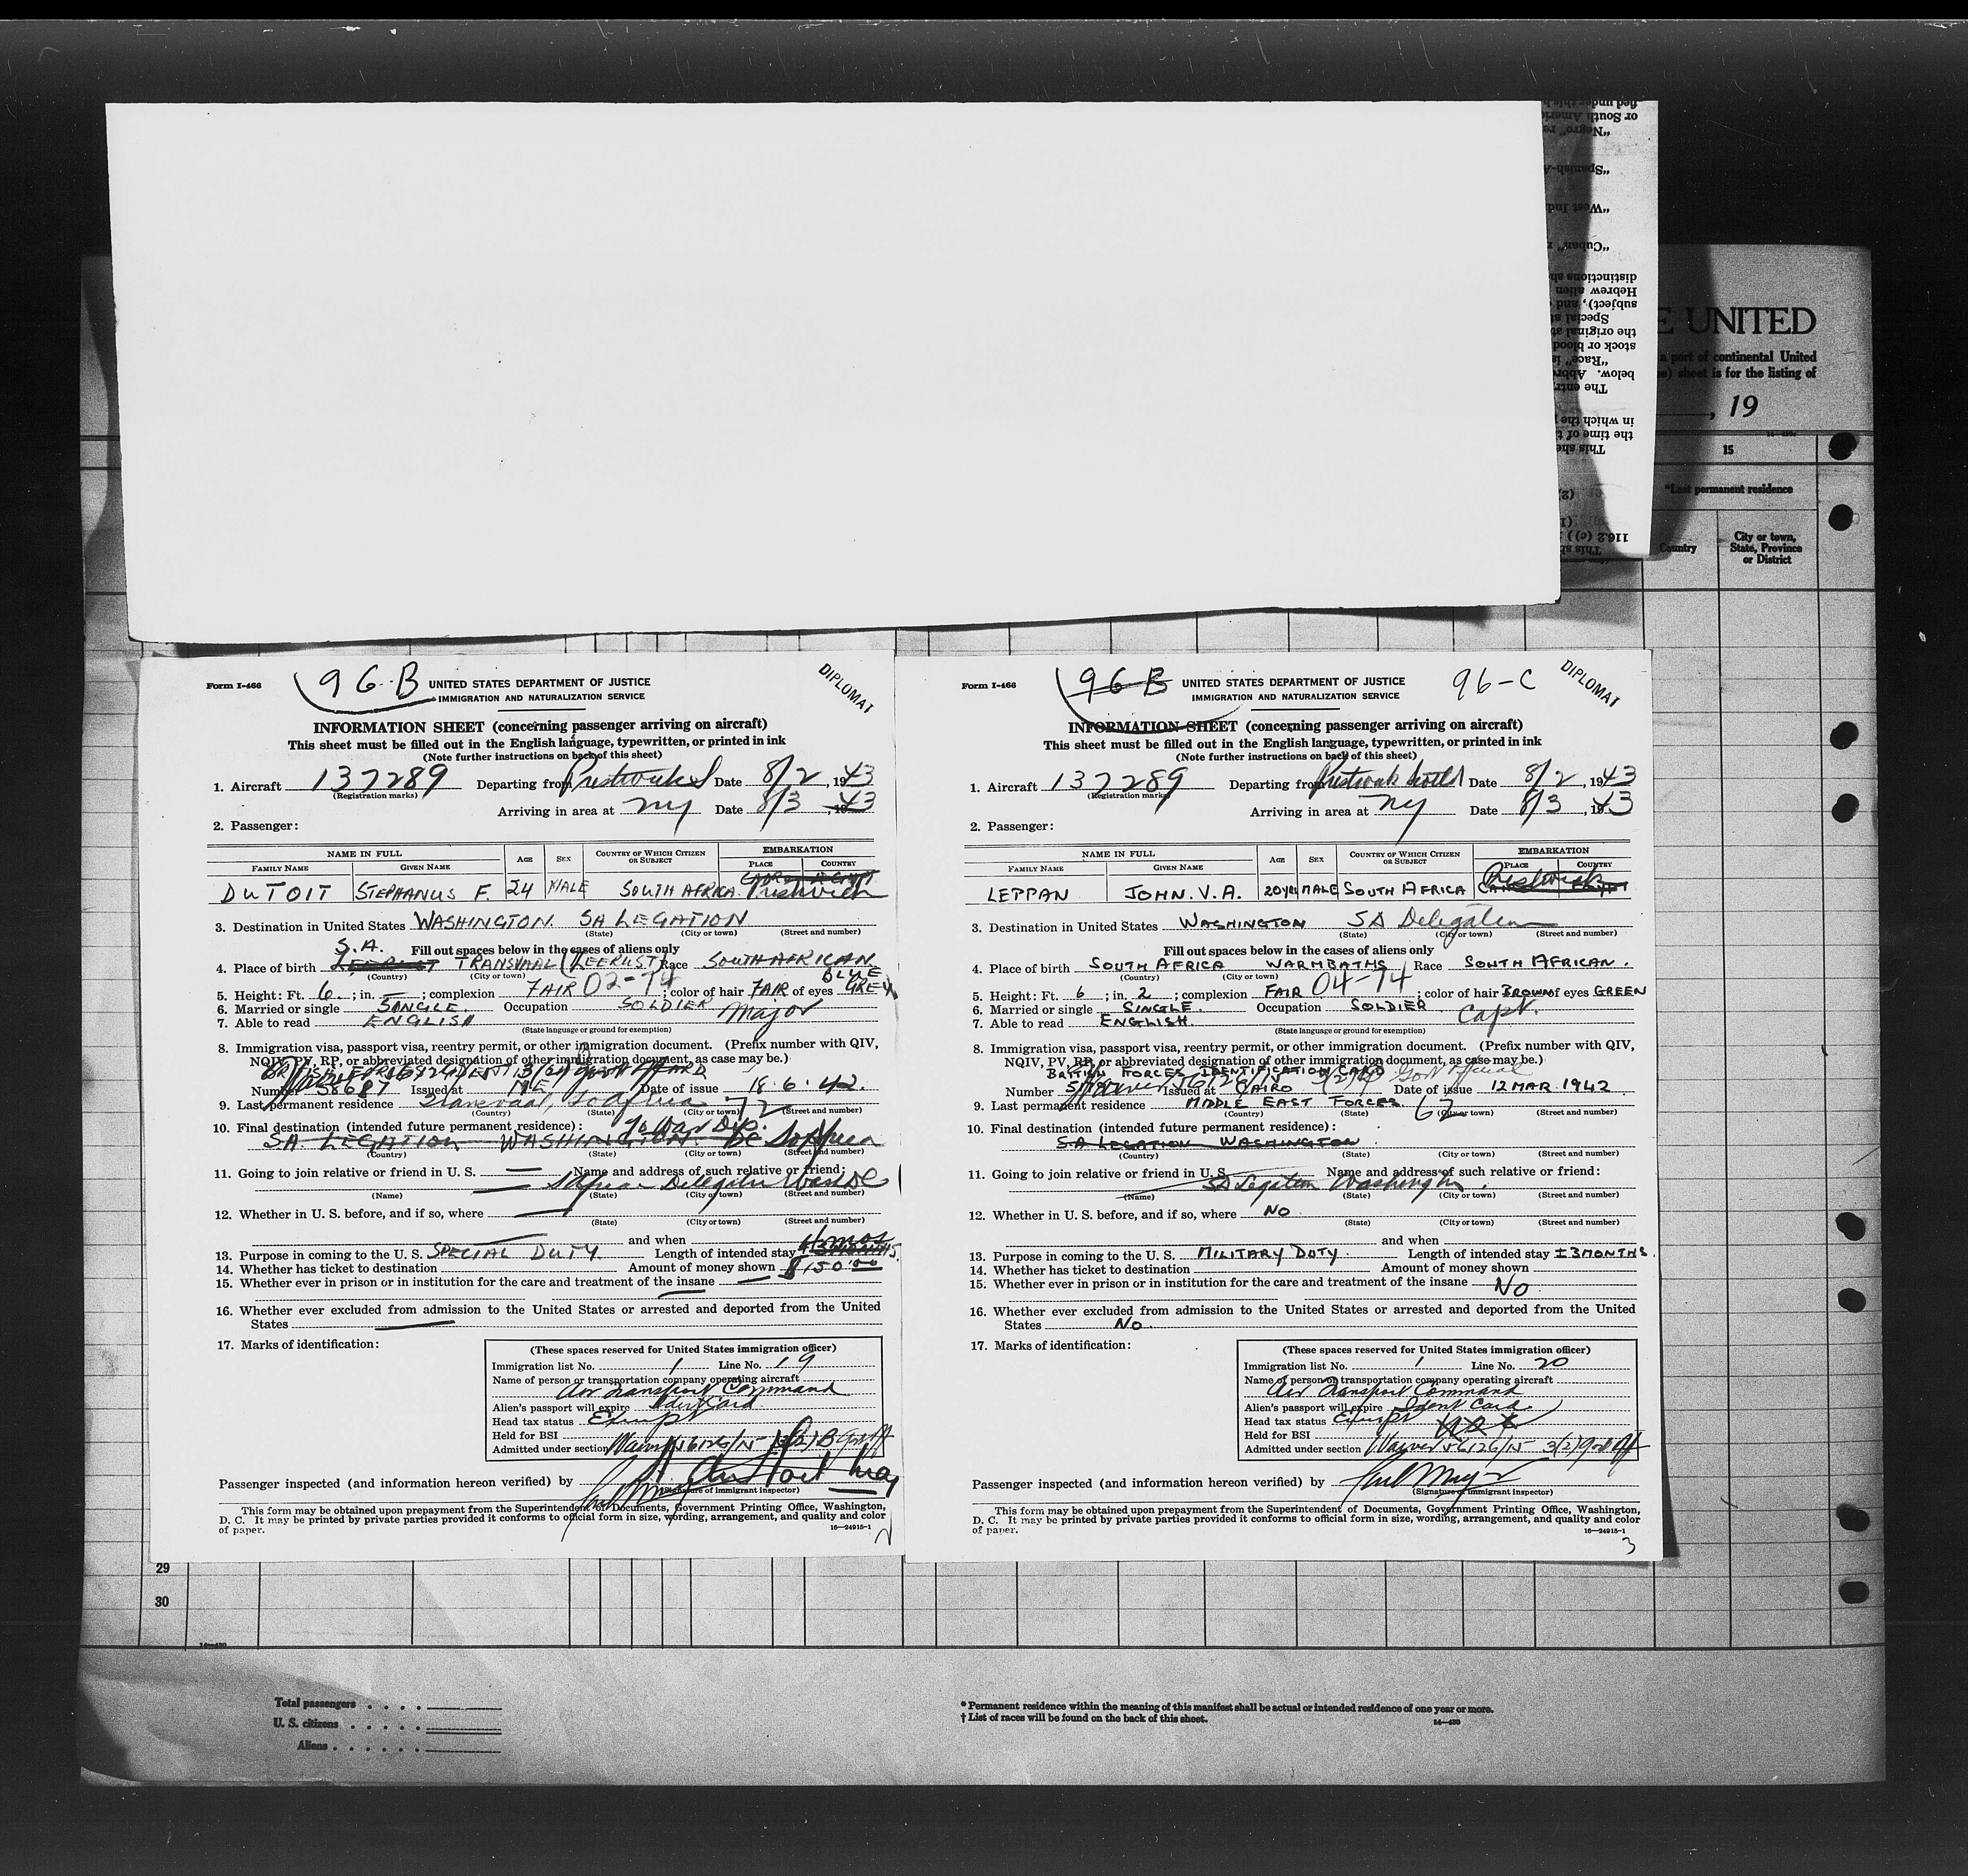 E UNITED
a port of continental United
sheet is for the listing of
, 19
15
*Last permanent residence
Country
City or town, State, Province or District
fied under this
or South America
"Negro" re
"Spanish-A
"West Ind
"Cuban"
distinctions
Hebrew alien
subject), and
Special
the original
stock or blood
"Race" is
below. Abbre
The entr
in which the
the time of
This she
116.2 (c))
Form I-466
96-B
UNITED STATES DEPARTMENT OF JUSTICE
IMMIGRATION AND NATURALIZATION SERVICE
DIPLOMAT
INFORMATION SHEET (concerning passenger arriving on aircraft)
This sheet must be filled out in the English language, typewritten, or printed in ink
(Note further instructions on back of this sheet)
1. Aircraft 137289 Departing from Date 8/2, 1943
(Registration marks)
Arriving in area at NY Date 8/3, 1943
2. Passenger:
NAME IN FULL AGE SEX COUNTRY OF WHICH CITIZEN OR SUBJECT EMBARKATION
FAMILY NAME GIVEN NAME PLACE COUNTRY
DUTOIT STEPHANUS F. 24 MALE SOUTH AFRICA. CAIRO EGYPT Prestwick
3. Destination in United States WASHINGTON. SA LEGATION
(State) (City or town) (Street and number)
S.A. Fill out spaces below in the cases of aliens only
4. Place of birth ZEERUST TRANSVAAL (ZEERUST) Race SOUTH AFRICAN
(Country) (City or town)
BLUE
5. Height: Ft. 6; in. –; complexion FAIR 02-74; color of hair FAIR of eyes GREY
6. Married or single SINGLE. Occupation SOLDIER Major
7. Able to read ENGLISH
(State language or ground for exemption)
8. Immigration visa, passport visa, reentry permit, or other immigration document. (Prefix number with QIV,
NQIV, PV, RP, or abbreviated designation of other immigration document, as case may be.)
Number 38687 Issued at M.E. Date of issue 18.6.42.
9. Last permanent residence Transvaal, So Africa 72
(Country) (State) (City or town) (Street and number)
10. Final destination (intended future permanent residence):
SA. LEGATION WASHINGTON. DC So Africa
(Country) (State) (City or town) (Street and number)
11. Going to join relative or friend in U. S. — Name and address of such relative or friend:
Wash DC
(Name) (State) (City or town) (Street and number)
12. Whether in U. S. before, and if so, where —
(State) (City or town) (Street and number)
and when
4 mos
13. Purpose in coming to the U. S. SPECIAL DUTY. Length of intended stay ± 3 MONTHS.
14. Whether has ticket to destination Amount of money shown $150.00
15. Whether ever in prison or in institution for the care and treatment of the insane —
16. Whether ever excluded from admission to the United States or arrested and deported from the United
States —
17. Marks of identification:
(These spaces reserved for United States immigration officer)
Immigration list No. 1 Line No. 19
Name of person or transportation company operating aircraft
Air Transport Command
Alien's passport will expire Ident Card
Head tax status Exempt
Held for BSI
Admitted under section Waiver
Passenger inspected (and information hereon verified) by
(Signature of immigrant inspector)
This form may be obtained upon prepayment from the Superintendent of Documents, Government Printing Office, Washington,
D. C. It may be printed by private parties provided it conforms to official form in size, wording, arrangement, and quality and color
of paper.
16—24915-1
2
Form I-466
96 B
UNITED STATES DEPARTMENT OF JUSTICE
IMMIGRATION AND NATURALIZATION SERVICE
96-C
DIPLOMAT
INFORMATION SHEET (concerning passenger arriving on aircraft)
This sheet must be filled out in the English language, typewritten, or printed in ink
(Note further instructions on back of this sheet)
1. Aircraft 137289 Departing from Date 8/2, 1943
(Registration marks)
Arriving in area at NY Date 8/3, 1943
2. Passenger:
NAME IN FULL AGE SEX COUNTRY OF WHICH CITIZEN OR SUBJECT EMBARKATION
FAMILY NAME GIVEN NAME PLACE COUNTRY
LEPPAN JOHN. V. A. 20 YRS MALE SOUTH AFRICA CAIRO EGYPT Prestwick
3. Destination in United States WASHINGTON SA Delegation
(State) (City or town) (Street and number)
Fill out spaces below in the cases of aliens only
4. Place of birth SOUTH AFRICA WARMBATHS Race SOUTH AFRICAN.
(Country) (City or town)
5. Height: Ft. 6; in. 2; complexion FAIR 04-74; color of hair BROWN of eyes GREEN
6. Married or single SINGLE. Occupation SOLDIER. Capt.
7. Able to read ENGLISH.
(State language or ground for exemption)
8. Immigration visa, passport visa, reentry permit, or other immigration document. (Prefix number with QIV,
NQIV, PV, RP, or abbreviated designation of other immigration document, as case may be.)
BRITISH FORCES IDENTIFICATION CARD
Number Issued at CAIRO Date of issue 12 MAR 1942
9. Last permanent residence MIDDLE EAST FORCES. 62
(Country) (State) (City or town) (Street and number)
10. Final destination (intended future permanent residence):
SA LEGATION WASHINGTON.
(Country) (State) (City or town) (Street and number)
11. Going to join relative or friend in U. S. Name and address of such relative or friend:
SA Legation Washington.
(Name) (State) (City or town) (Street and number)
12. Whether in U. S. before, and if so, where NO
(State) (City or town) (Street and number)
and when
13. Purpose in coming to the U. S. MILITARY DUTY. Length of intended stay ± 3 MONTHS.
14. Whether has ticket to destination Amount of money shown
15. Whether ever in prison or in institution for the care and treatment of the insane No
16. Whether ever excluded from admission to the United States or arrested and deported from the United
States No.
17. Marks of identification:
(These spaces reserved for United States immigration officer)
Immigration list No. 1 Line No. 20
Name of person or transportation company operating aircraft
Air Transport Command
Alien's passport will expire Ident Card
Head tax status Exempt
Held for BSI
Admitted under section Waiver 56126/15 3(2) Gov Off
Passenger inspected (and information hereon verified) by
(Signature of immigrant inspector)
This form may be obtained upon prepayment from the Superintendent of Documents, Government Printing Office, Washington,
D. C. It may be printed by private parties provided it conforms to official form in size, wording, arrangement, and quality and color
of paper.
16—24915-1
3
29
30
Total passengers
U. S. citizens
Aliens
* Permanent residence within the meaning of this manifest shall be actual or intended residence of one year or more.
† List of races will be found on the back of this sheet.